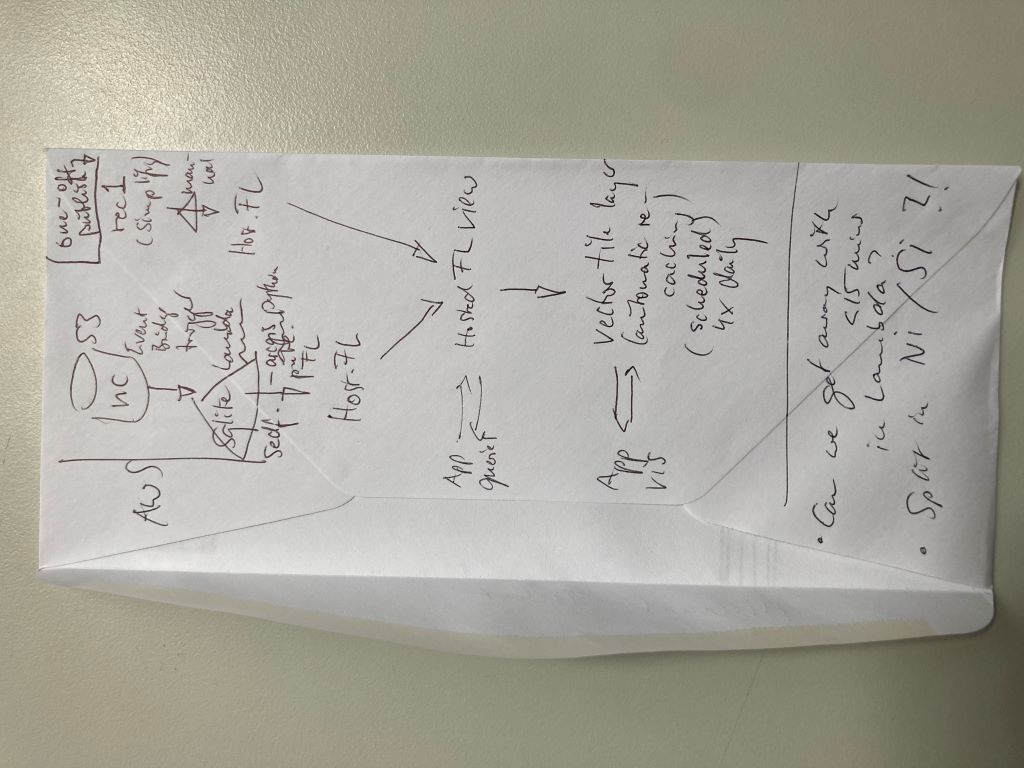 AWS
S3
nc
Event
Bridge
trigger
Sqlite
Lambda
arcgis python
FL
Host. FL
One-off
publish
rec1
(simplify)
man-
ual
Host. FL
App
query
Hosted FL view
App
vis
Vector tile layer
(automatic re-
caching)
(scheduled)
4x daily
• Can we get away with
<15 mins
in Lambda?
• Split in Ni / Si ?!